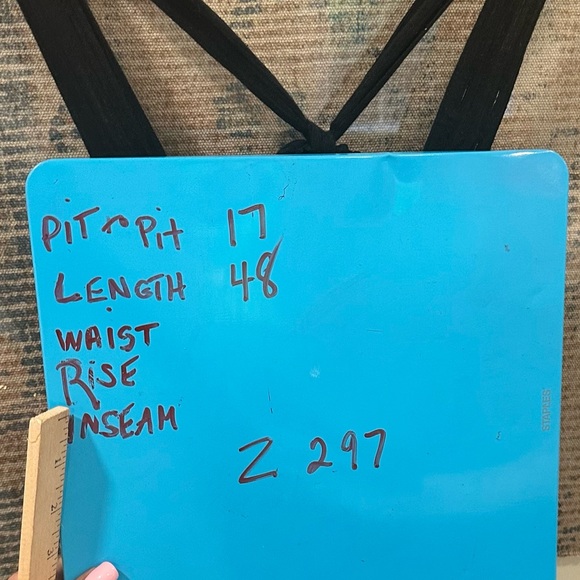 PiT ~ Pit 17
LENGTH 48
WAIST
RiSE
INSEAM
Z 297
STAPLES